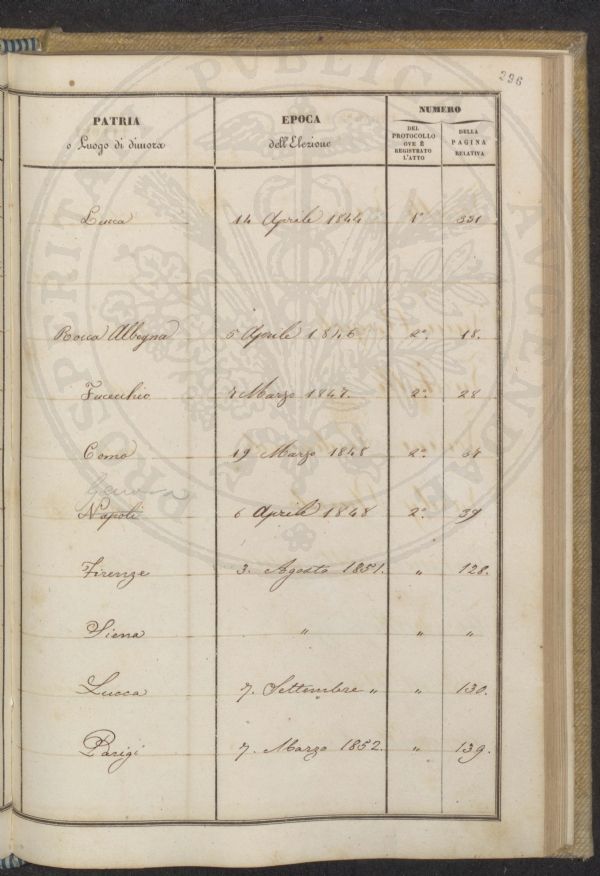 296
PATRIA
o Luogo di dimora
EPOCA
dell'Elezione
NUMERO
DEL
PROTOCOLLO
OVE È
REGISTRATO
L'ATTO
DELLA
PAGINA
RELATIVA
Lucca 14 Aprile 1844 1° 351
Rocca Albegna 5 Aprile 1846. 2°. 18.
Fucecchio 7 Marzo 1847. 2°. 28
Como 19 Marzo 1848 2°
Genova
Napoli 6 Aprile 1848 2°. 39
Firenze 3. Agosto 1851. " 128.
Siena " " "
Lucca 7. Settembre " " 130.
Parigi 7. Marzo 1852. " 139.
PROSPERITATI PUBLICAE AUGENDAE